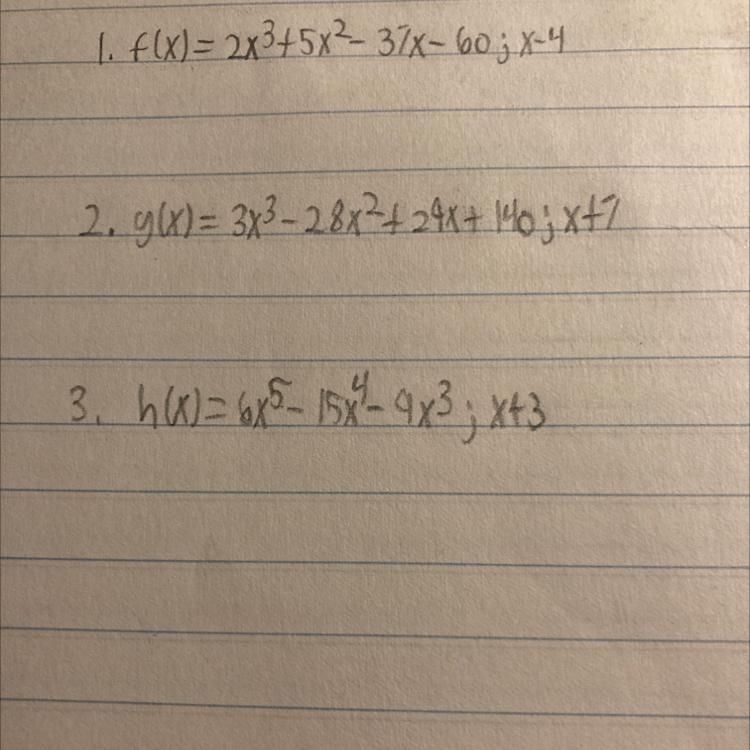 1. f(x) = 2x³+5x²- 37x- 60; x-4
2. g(x) = 3x³-28x²+29x+140; x+7
3. h(x) = 6x⁵- 15x⁴- 9x³; x+3